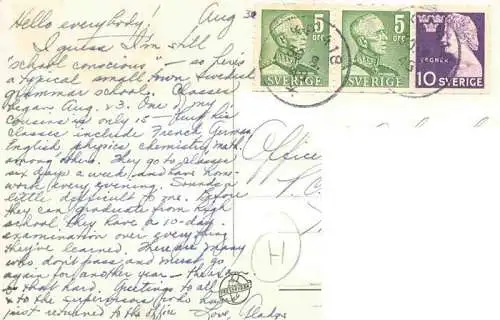 Hello everybody! Aug 30
I guess I'm still
"school conscious" – so here's
a typical small town Swedish
grammar school. Classes
began Aug. 23. One of my
cousins is only 15 – but his
classes include French, German,
English, physics, chemistry, math.
among others. They go to classes
six days a week and have home-
work every evening. Sounds a
little difficult to me. Before
they can graduate from high
school they have a 10-day
examination over everything
they've learned. There are many
who don't pass and must go
again for another year – the
that hard. Greetings to all
& to the supervisors who have
just returned to the office
Love, Gladys
5
ÖRE
SVERIGE
5
ÖRE
SVERIGE
TEGNÉR
10 SVERIGE
Office
H